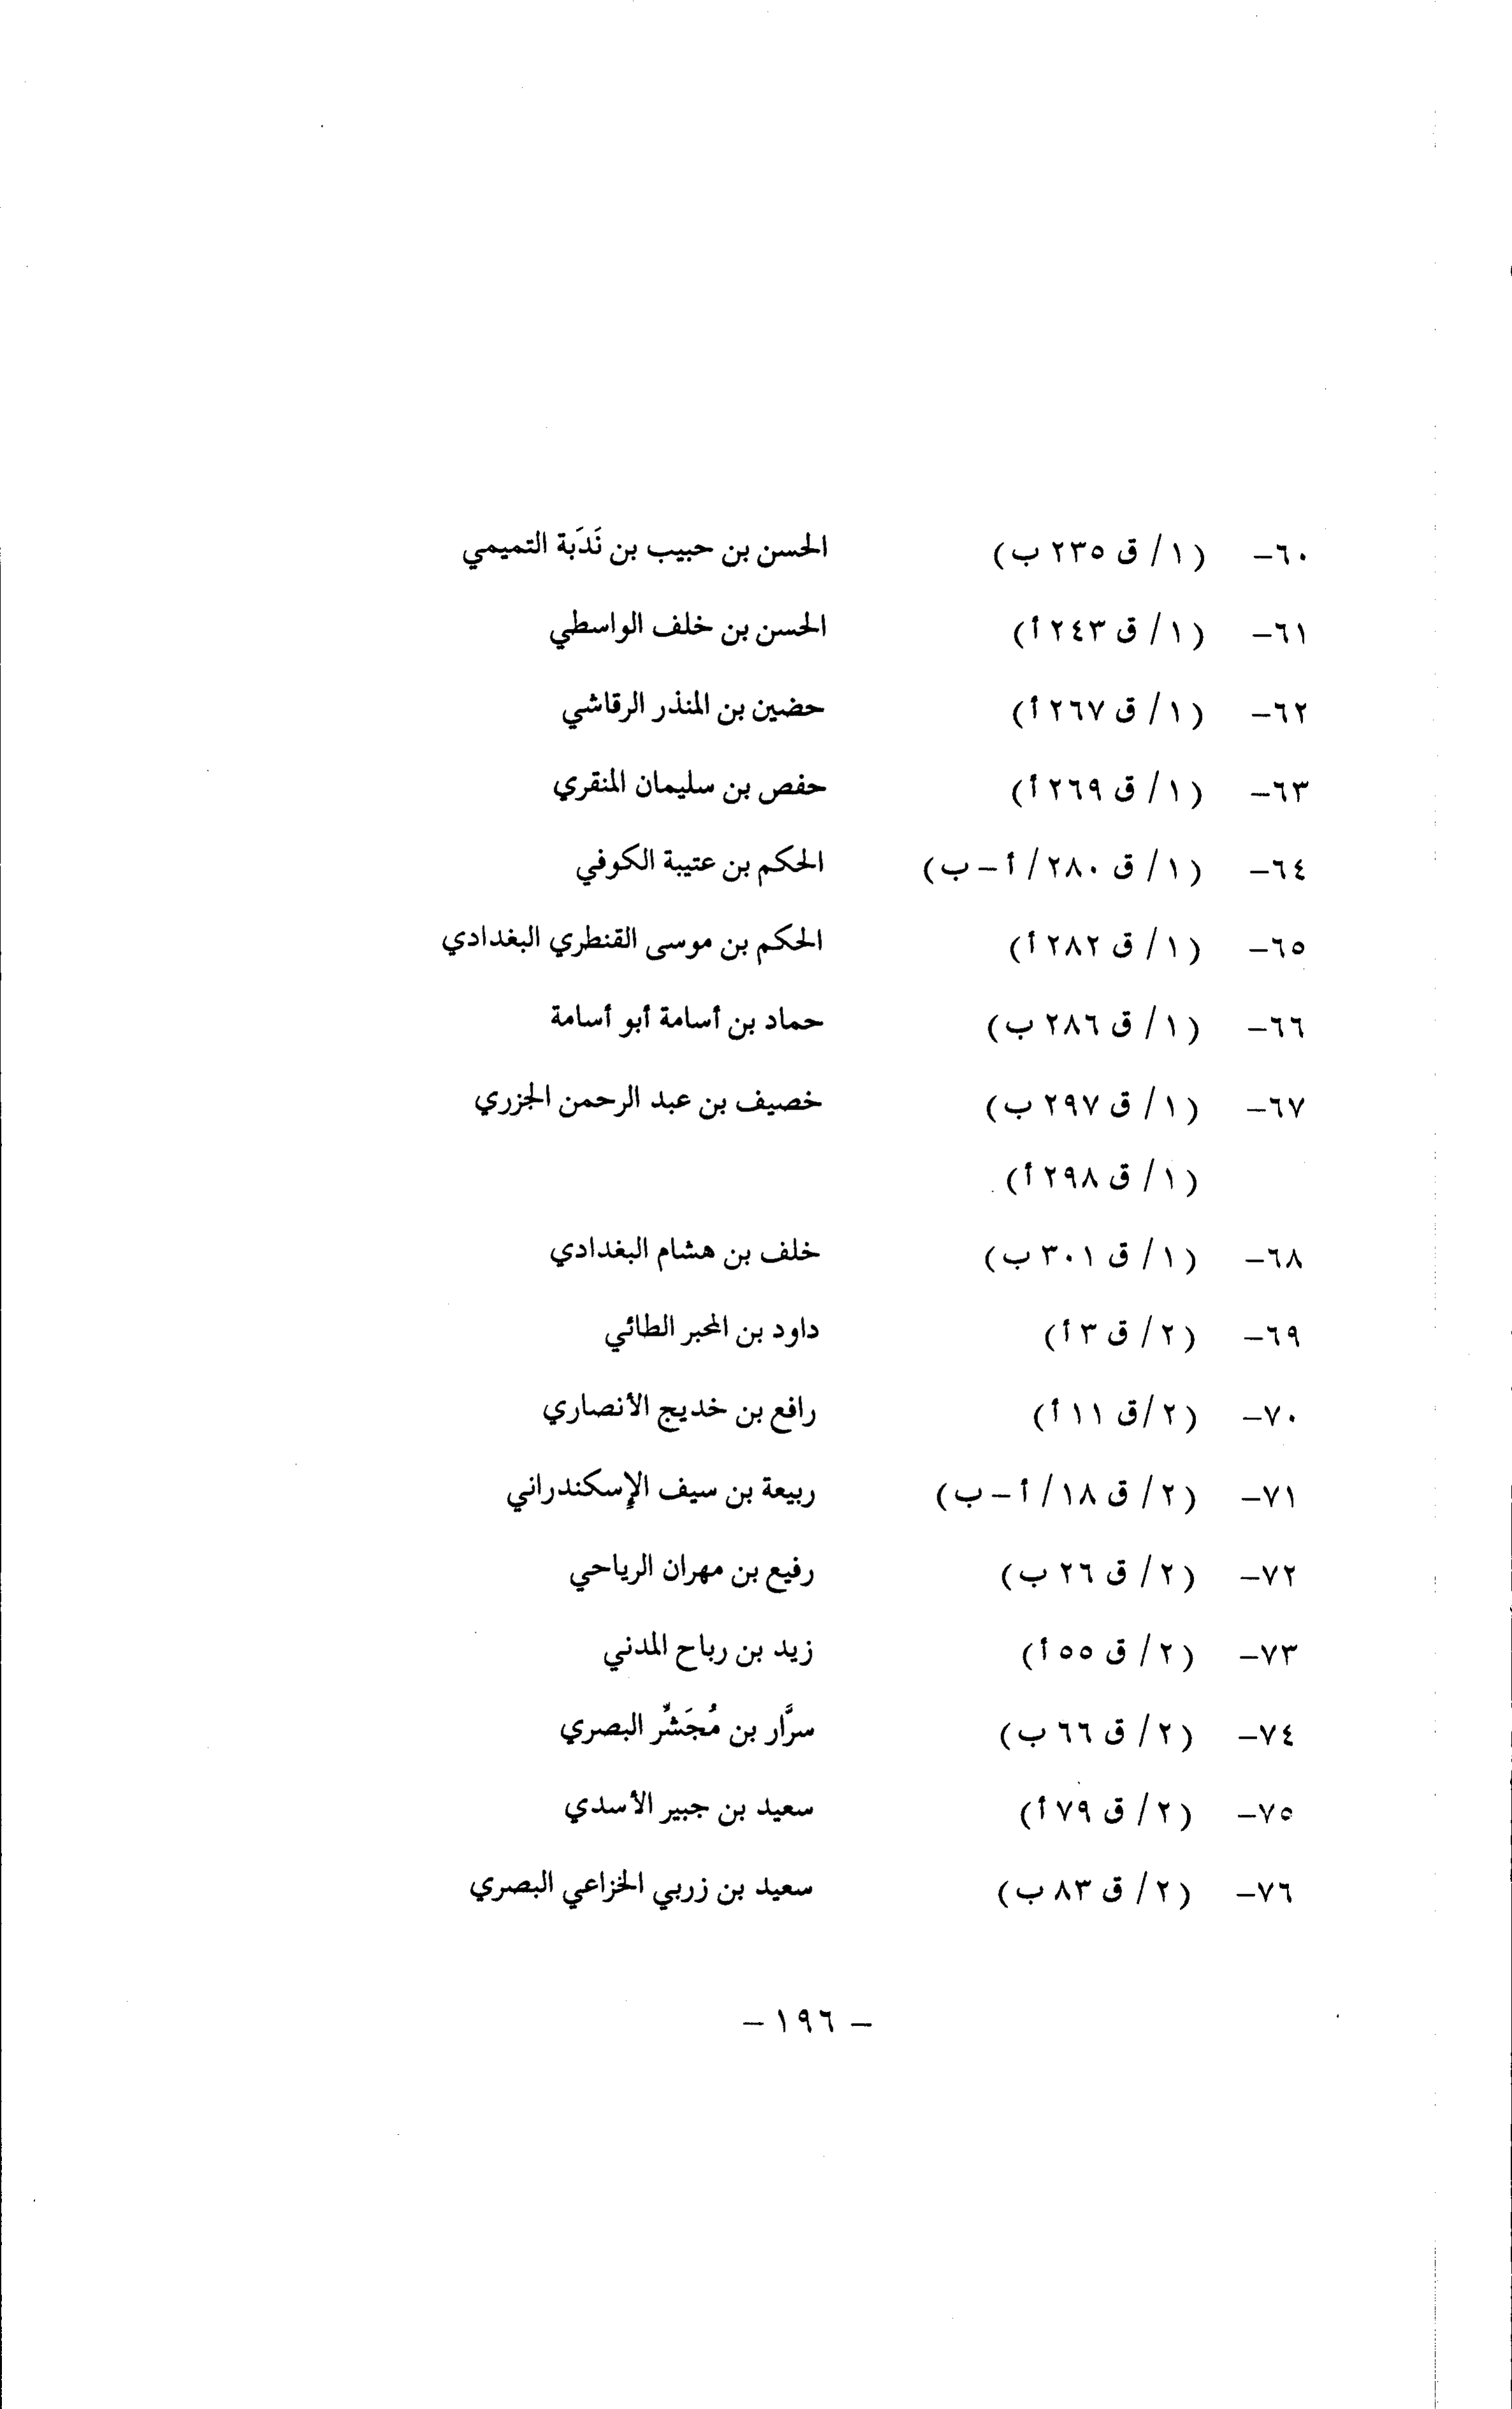 ٦٠- (١/ ق ٢٣٥ ب) الحسن بن حبيب بن نَدَبة التميمي
٦١- (١/ ق ٢٤٣ أ) الحسن بن خلف الواسطي
٦٢- (١/ ق ٢٦٧ أ) حضين بن المنذر الرقاشي
٦٣- (١/ ق ٢٦٩ أ) حفص بن سليمان المنقري
٦٤- (١/ ق ٢٨٠/ أ-ب) الحكم بن عتيبة الكوفي
٦٥- (١/ ق ٢٨٢ أ) الحكم بن موسى القنطري البغدادي
٦٦- (١/ ق ٢٨٦ ب) حماد بن أسامة أبو أسامة
٦٧- (١/ ق ٢٩٧ ب) خصيف بن عبد الرحمن الجزري
(١/ ق ٢٩٨ أ)
٦٨- (١/ ق ٣٠١ ب) خلف بن هشام البغدادي
٦٩- (٢/ ق ٣ أ) داود بن المحبر الطائي
٧٠- (٢/ق ١١ أ) رافع بن خديج الأنصاري
٧١- (٢/ ق ١٨/ أ-ب) ربيعة بن سيف الإسكندراني
٧٢- (٢/ ق ٢٦ ب) رفيع بن مهران الرياحي
٧٣- (٢/ ق ٥٥ أ) زيد بن رباح المدني
٧٤- (٢/ ق ٦٦ ب) سرَّار بن مُجَشِّر البصري
٧٥- (٢/ ق ٧٩ أ) سعيد بن جبير الأسدي
٧٦- (٢/ ق ٨٣ ب) سعيد بن زربي الخزاعي البصري
- ١٩٦ -